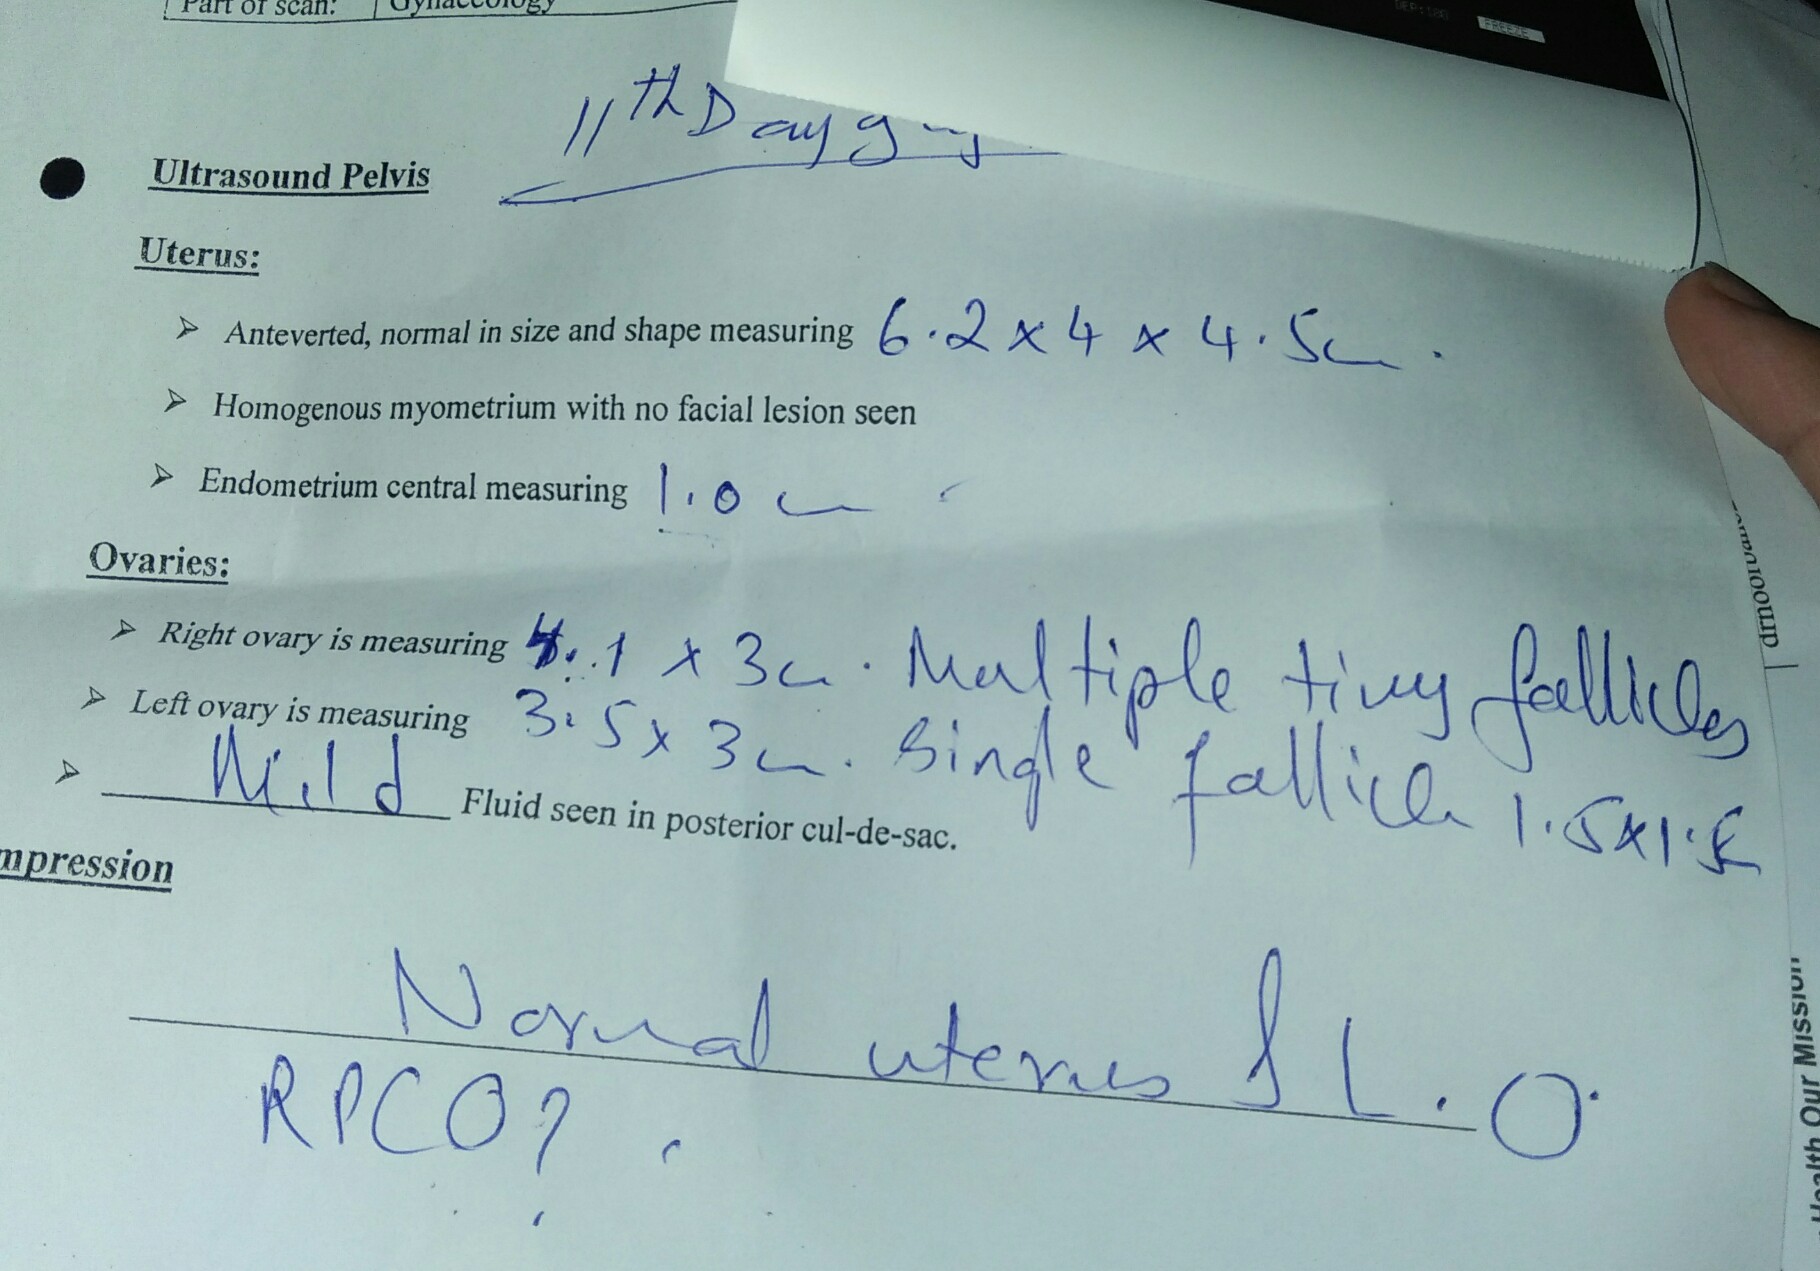 Part of scan: Gynaecology
FREEZE
11th Day
Ultrasound Pelvis
Uterus:
➢ Anteverted, normal in size and shape measuring 6.2 x 4 x 4.5cm.
➢ Homogenous myometrium with no facial lesion seen
➢ Endometrium central measuring 1.0 cm
Ovaries:
➢ Right ovary is measuring 4.1 x 3cm. Multiple tiny follicles
➢ Left ovary is measuring 3.5 x 3cm. Single follicle 1.5x1.5
➢ Mild Fluid seen in posterior cul-de-sac.
mpression
Normal uterus & L.O.
RPCO?
Health Our Mission